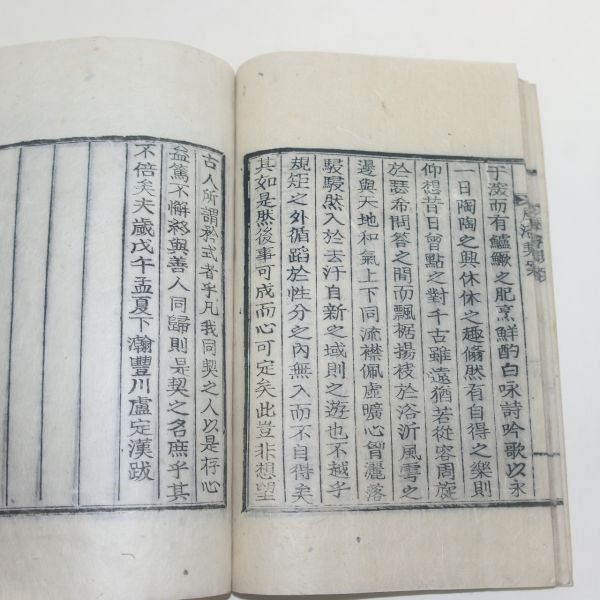 于湲而有鱸鱖之肥烹鮮酌白咏詩吟歌以永
一日陶陶之興休休之趣翛然有自得之樂則
仰想昔日曾點之對千古雖遠猶若從容周旋
於瑟希問答之間而飄裾揚袂於洛沂風雩之
邊與天地和氣上下同流襟佩虛曠心曾灑落
駸駸然入於去汙自新之域則之遊也不越乎
規矩之外循蹈於性分之內無入而不自得矣
其如是然後事可成而心可定矣此豈非想望
古人所謂矜式者乎凡我同契之人以是存心
益篤不懈終與善人同歸則吳契之名庶乎其
不倍矣夫歲戊午孟夏下瀚豐川盧定漢跋